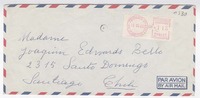 Madame
Joaquin Edwards Bello
2315 Santo Domingo
Santiago Chile
PAR AVION
BY AIR MAIL